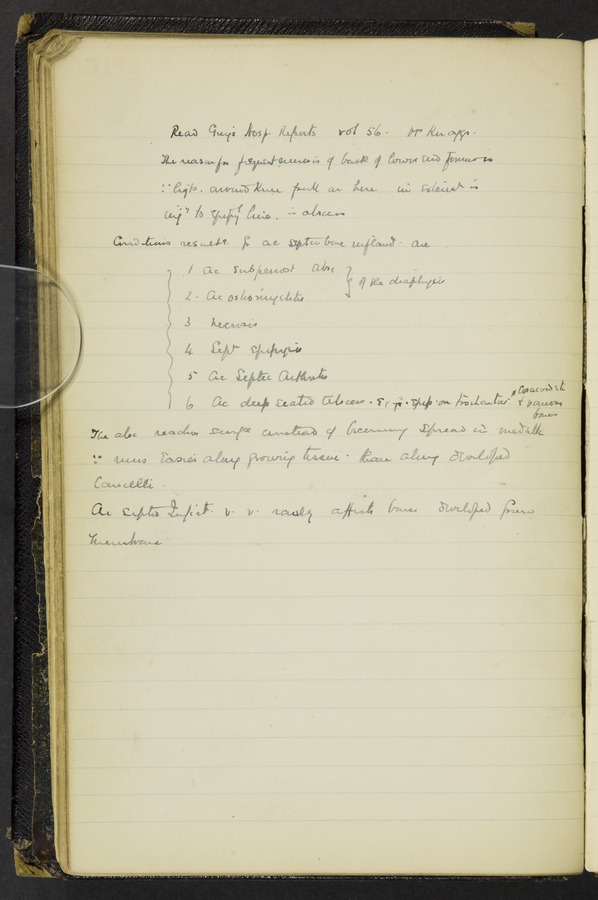 Read Guy's Hosp. Reports vol 56. Mr Knaggs.
The reason for frequent necrosis of back of lower end femur is
∵ ligts. around knee pull on here
Conditions result. fr ac septic bone inflam. are
1 Ac subperiost absc } of the diaphysis
2. Ac osteomyelitis
3 Necrosis
4 Sept epiphysis
5 Ac Septic Arthritis
6 Ac deep seated Abscess. Coracoid
& various
bones
The absc reaches surface instead of becoming spread in medulla
∵ runs easier along growing tissue. than along developed
Cancelli.
Ac septic Infect. v. v. rarely affects bones developed from
membrane